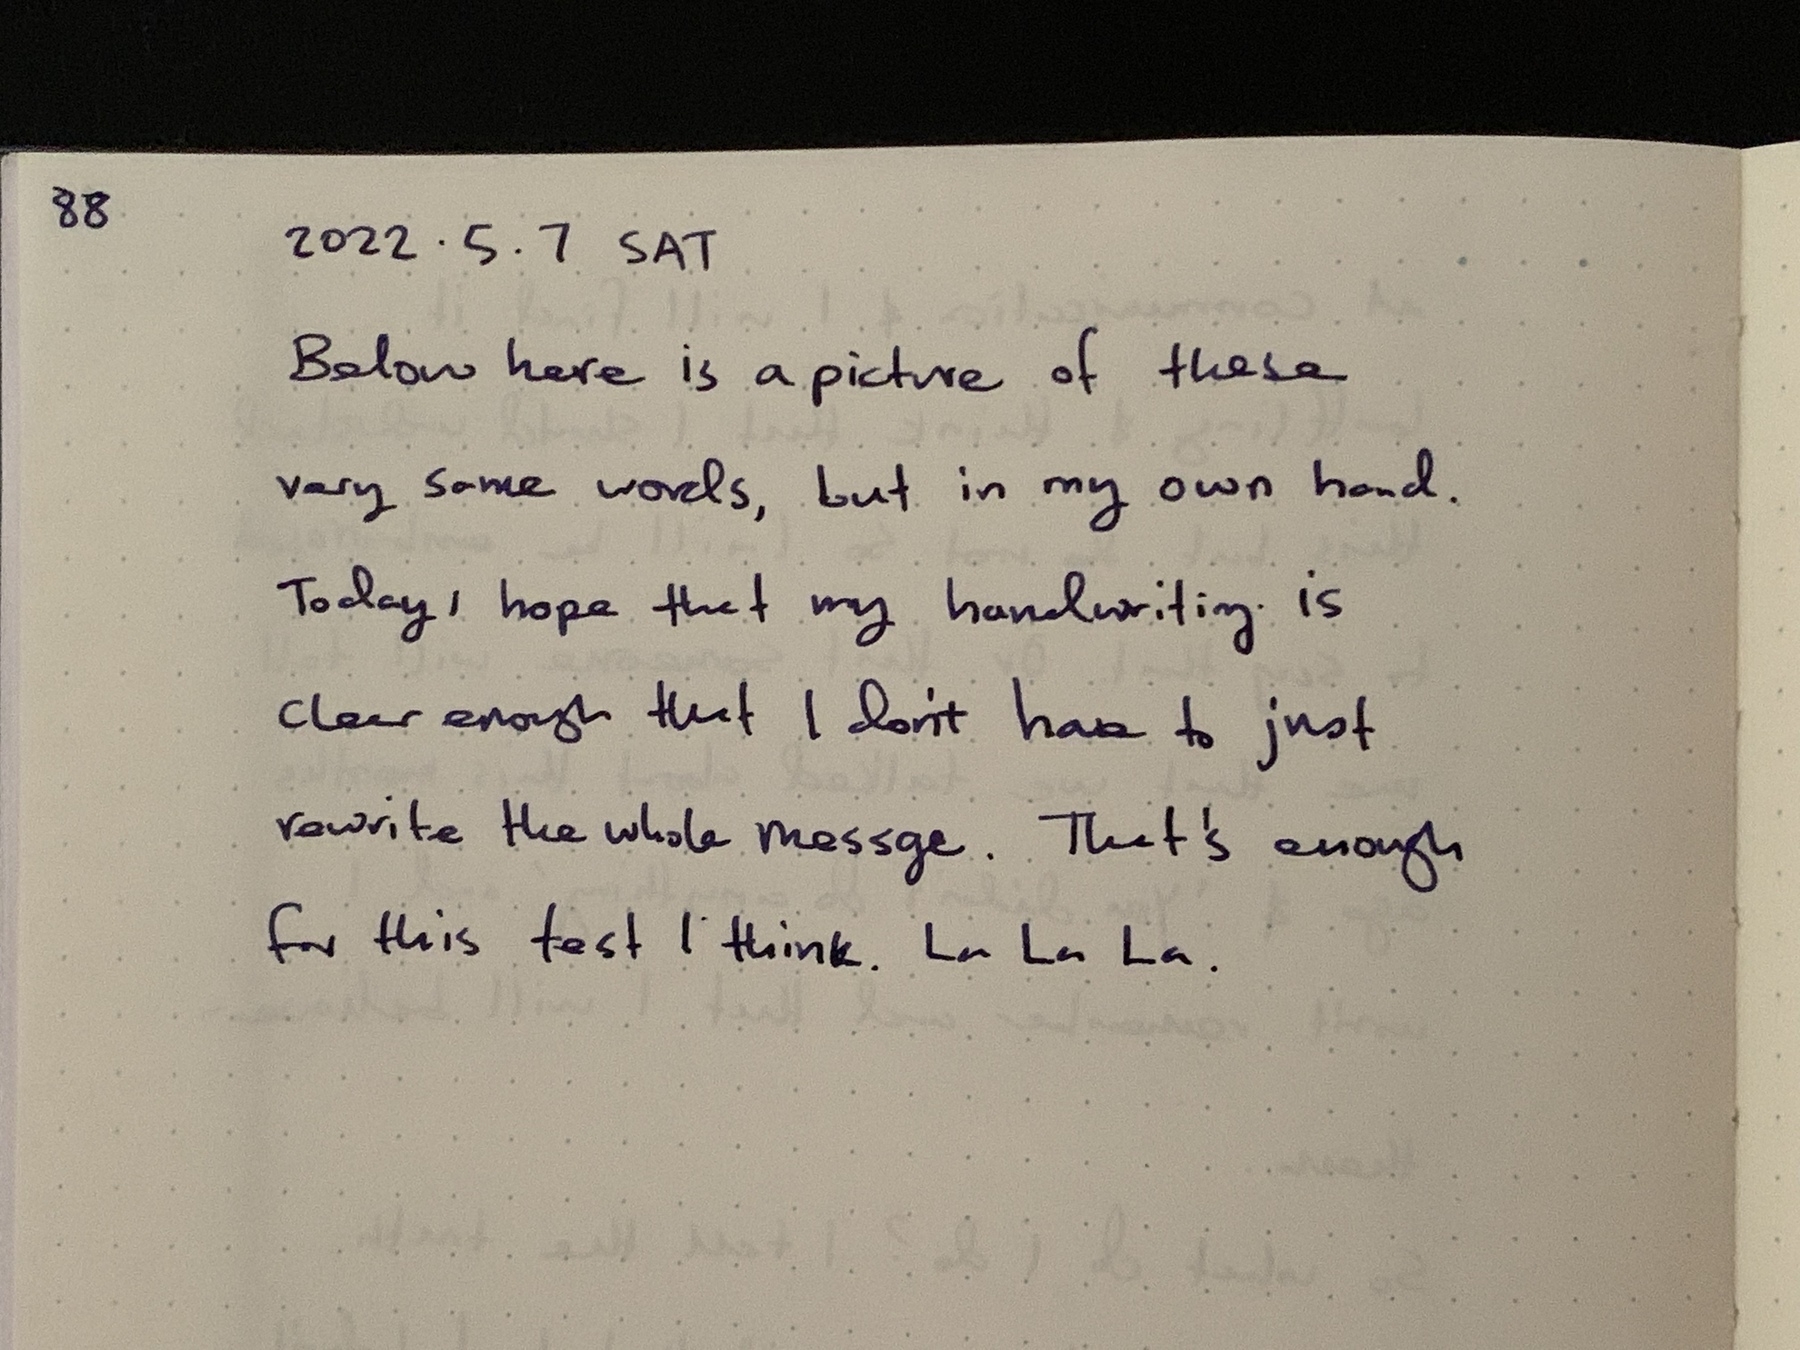 88
2022.5.7 SAT
Below here is a picture of these
very same words, but in my own hand.
Today I hope that my handwriting is
clear enough that I don't have to just
rewrite the whole messge. That's enough
for this test I think. La La La.